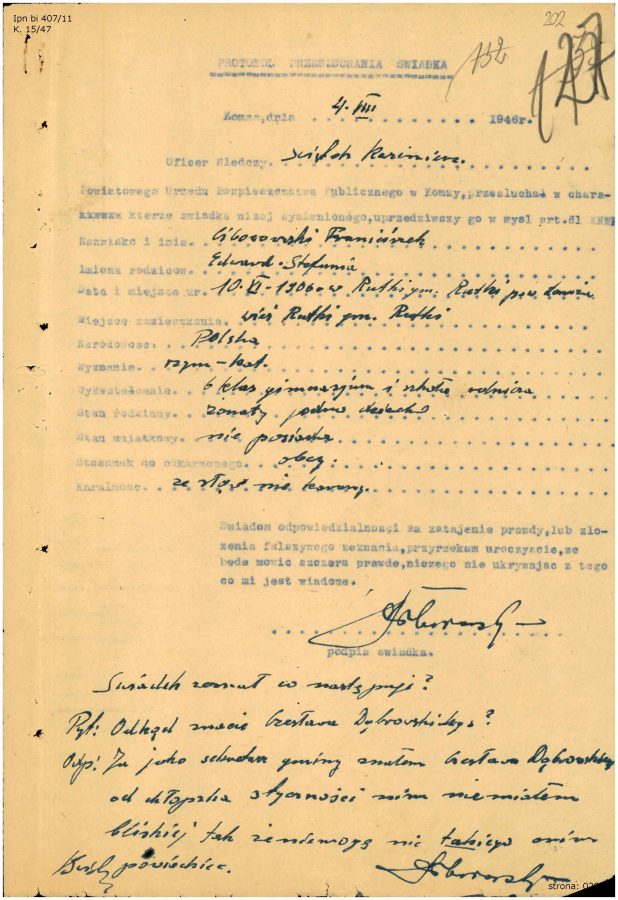 Ipn bi 407/11
K. 15/47
202
132
127
PROTOKOL PRZESLUCHANIA SWIADKA
Łomza, dnia 4. VIII 1946r.
Oficer Sledczy. Kazimierz.
Powiatowego Urzedu Bezpieczenstwa Publicznego w Łomzy, przesluchał w chara-
kterze swiadka nizej wymienionego, uprzedziwszy go w mysl art. 61 KWPK
Nazwisko i imie. Ciborowski Franciszek
Imiona rodzicow. Edward - Stefania
Data i miejsce ur. 10-XI-1906 w Rutki gm. Rutki pow. Łomza
Miejsce zamieszkania. wieś Rutki gm. Rutki
Narodowosc. Polska
Wyznanie. rzym-kat.
Wyksztalcenie. 6 klas gimnazjum i szkoła rolnicza
Stan rodzinny. żonaty jedno dziecko
Stan majatkowy. nie posiada
Stosunek do oskarzonego. obcy.
Karalnosc. ze słów nie karany.
Swiadom odpowiedzialnosci za zatajenie prawdy, lub zlo-
zenia falszywego zeznania, przyrzekam uroczyscie, ze
bede mowic szczera prawde, niczego nie ukrywajac z tego
co mi jest wiadome.
podpis swiadka.
Świadek zeznał co następuje?
Pyt: Odkąd znacie Czesława Dąbrowskiego?
Odp: Ja jako sekretarz gminy znałem Czesława Dąbrowskiego
od chłopaka styczności z nim nie miałem
bliskiej tak że nie mogę nic takiego o nim
powiedzieć.
strona: